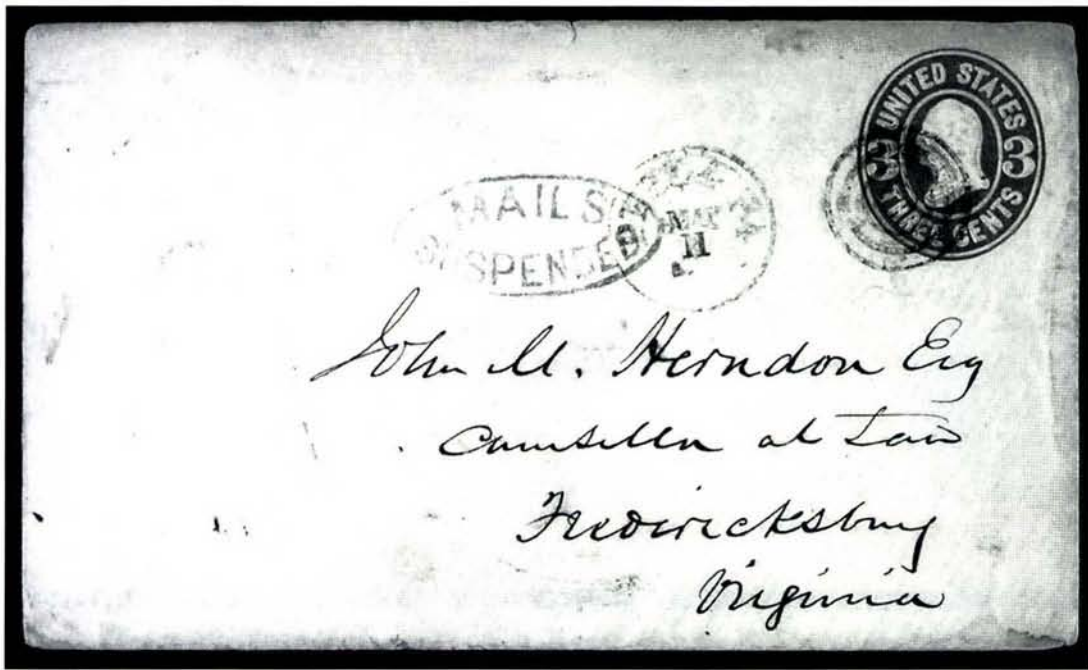 UNITED STATES
3 3
THREE CENTS
MAILS
SUSPENDED
MAY
11
John M. Herndon Esq
Counsellor at Law
Fredericksburg
Virginia